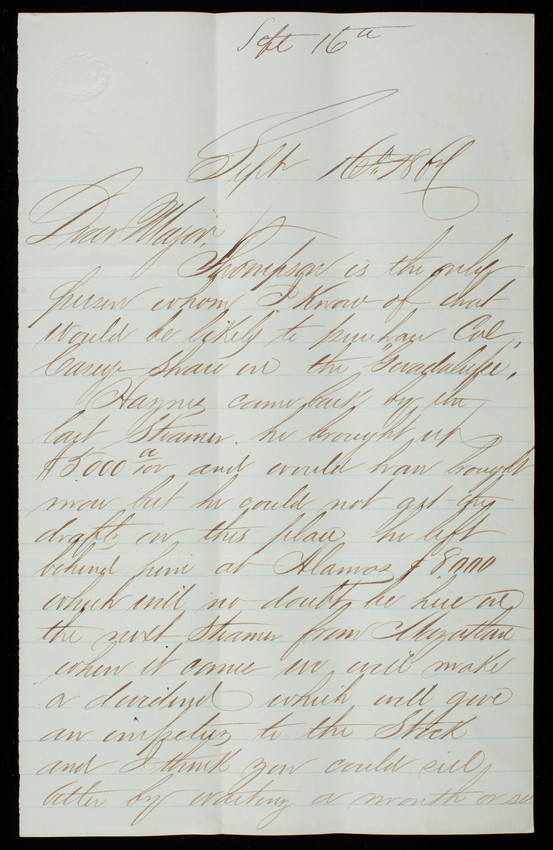 Sept 16th
Sept 16th 186
Dear Major,
Thompson is the only
person whom I know of that
would be likely to purchase Col.
Caseys share in the Guadalupe,
Haynes came back by the
last Steamer. he brought up
$5000 00/100 and would have brought
more but he could not get any
drafts on this place, he left
behind him at Alamos $8000
which will no doubt be here on
the next Steamer from Mazatlan
when it comes we will make
a dividend which will give
an impetus to the Stock
and I think you could sell
better by waiting a month or so